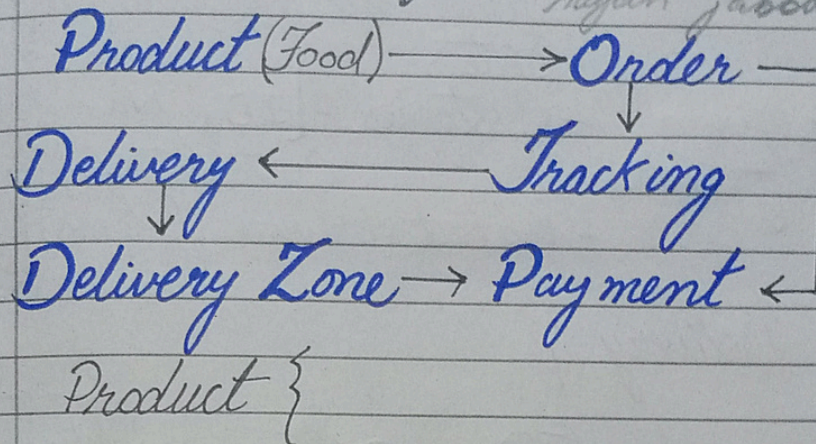 Product (Food) → Order
Delivery ← Tracking
Delivery Zone → Payment ←
Product {